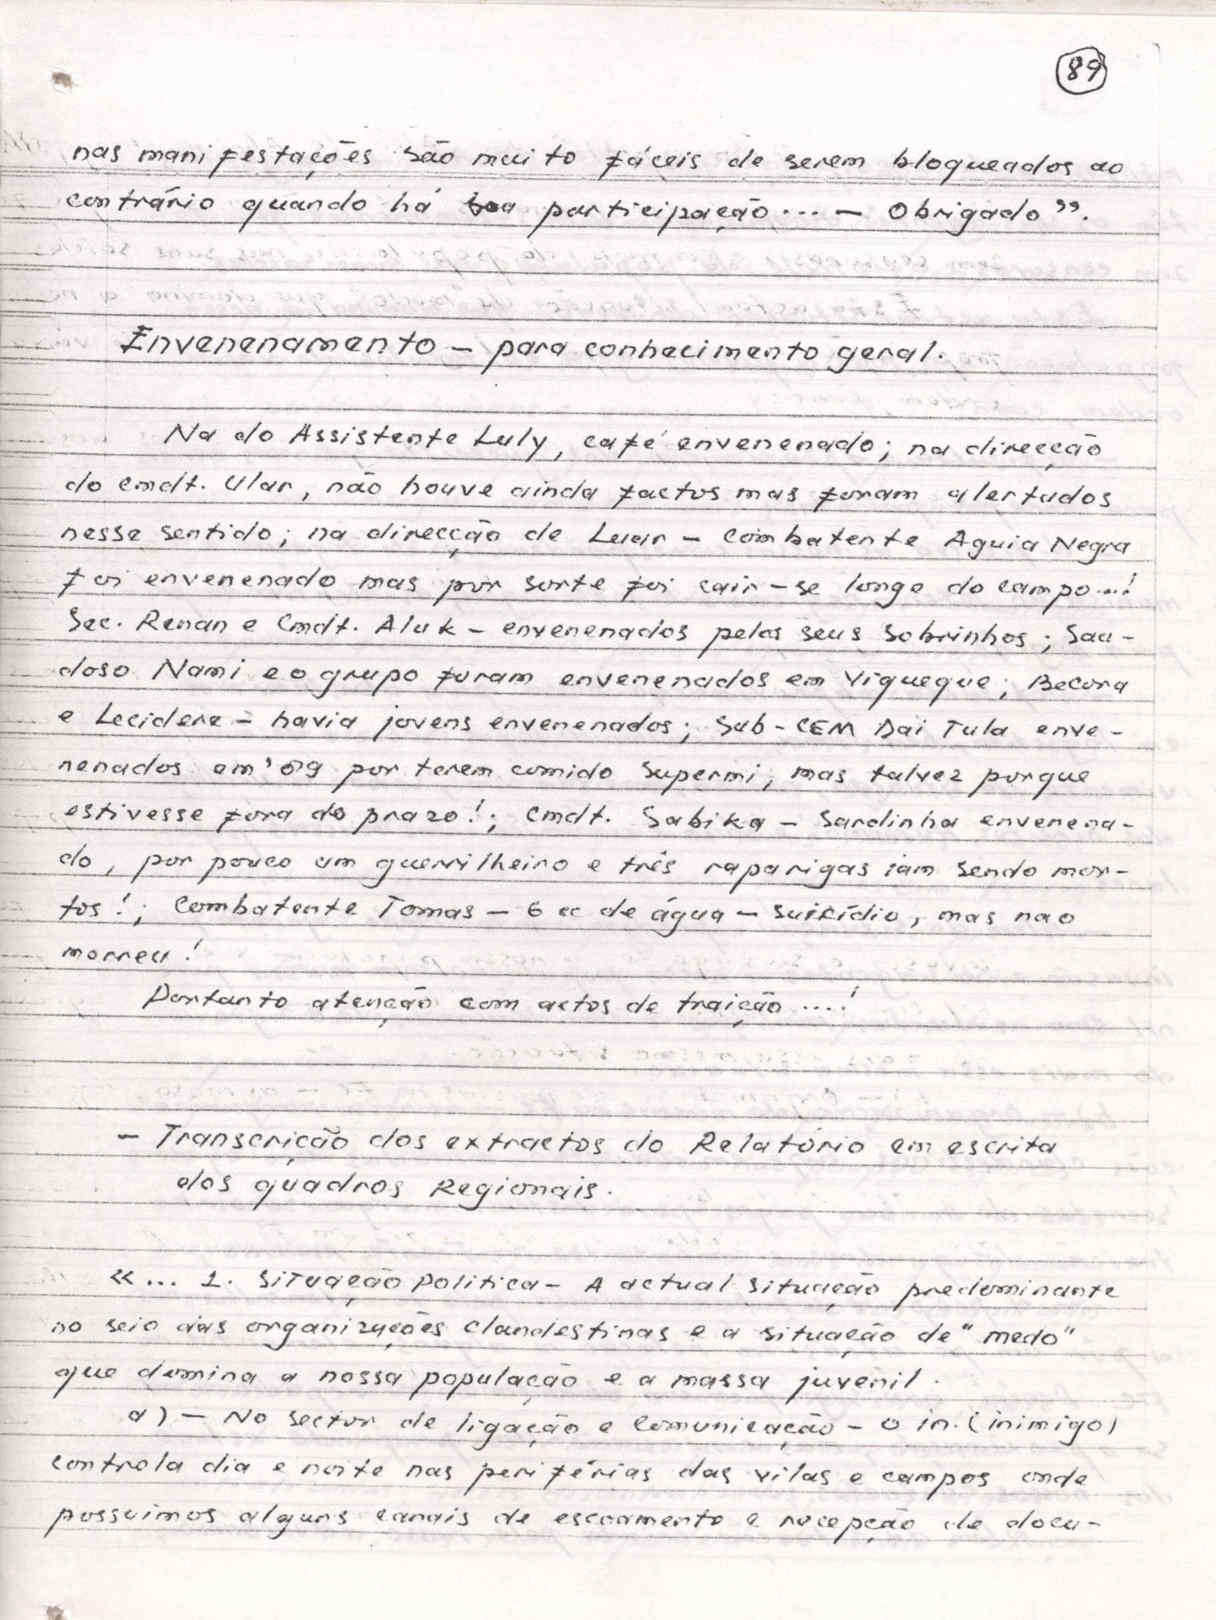 89
nas manifestações são muito fáceis de serem bloqueados ao
contrário quando há boa participação... — Obrigado”.
Envenenamento — para conhecimento geral.
Na do Assistente Luly, café envenenado; na direcção
do Cmdt. Ular, não houve ainda factos mas foram alertados
nesse sentido; na direcção de Luar — Combatente Aguia Negra
foi envenenado mas por sorte foi cair-se longe do campo...!
Sec. Renan e Cmdt. Aluk — envenenados pelos seus sobrinhos; Sau-
doso Nami e o grupo furam envenenados em Viqueque; Becora
e Lecidere — havia jovens envenenados; Sub-CEM Dai Tula enve-
nenados em '89 por terem comido Supermi, mas talvez porque
estivesse fora do prazo!; Cmdt. Sabika — Sardinha envenena-
do, por pouco um guerrilheiro e três raparigas iam sendo mor-
tos!; Combatente Tomas — 6 cc de água — suicídio, mas nao
morreu!
Portanto atenção com actos de traição....!
— Transcrição dos extractos do Relatório em escrita
dos quadros Regionais.
«... 1. Situação Politica — A actual situação predominante
no seio das organizações clandestinas e a situação de "medo"
que domina a nossa população e a massa juvenil.
a) — No sector de ligação e Comunicação — o in. (inimigo)
controla dia e noite nas periférias das vilas e campos onde
possuimos alguns canais de escoamento e recepção de docu-